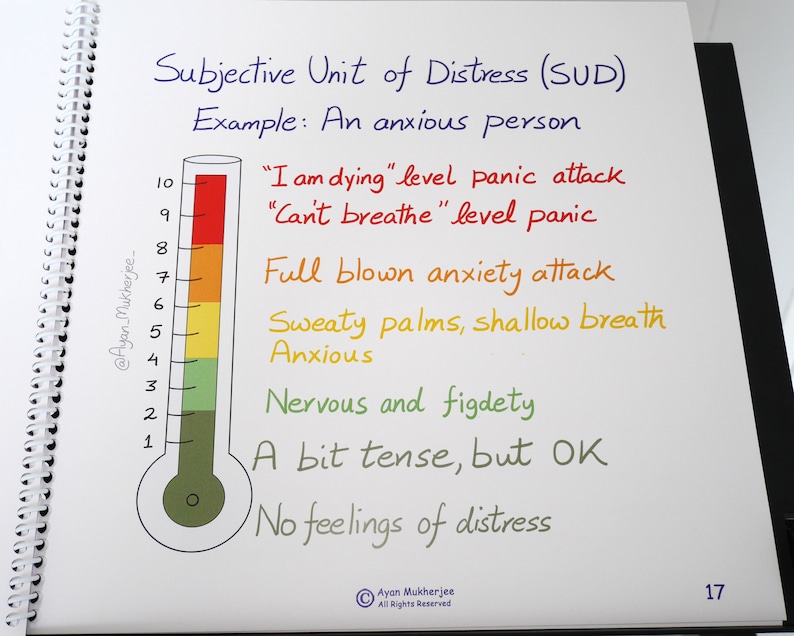 Subjective Unit of Distress (SUD)
Example: An anxious person
10
"I am dying" level panic attack
9
"Can't breathe" level panic
8
7
Full blown anxiety attack
6
5
Sweaty palms, shallow breath
Anxious
4
3
Nervous and figdety
2
1
A bit tense, but OK
No feelings of distress
@Ayan_Mukherjee_
© Ayan Mukherjee
All Rights Reserved
17